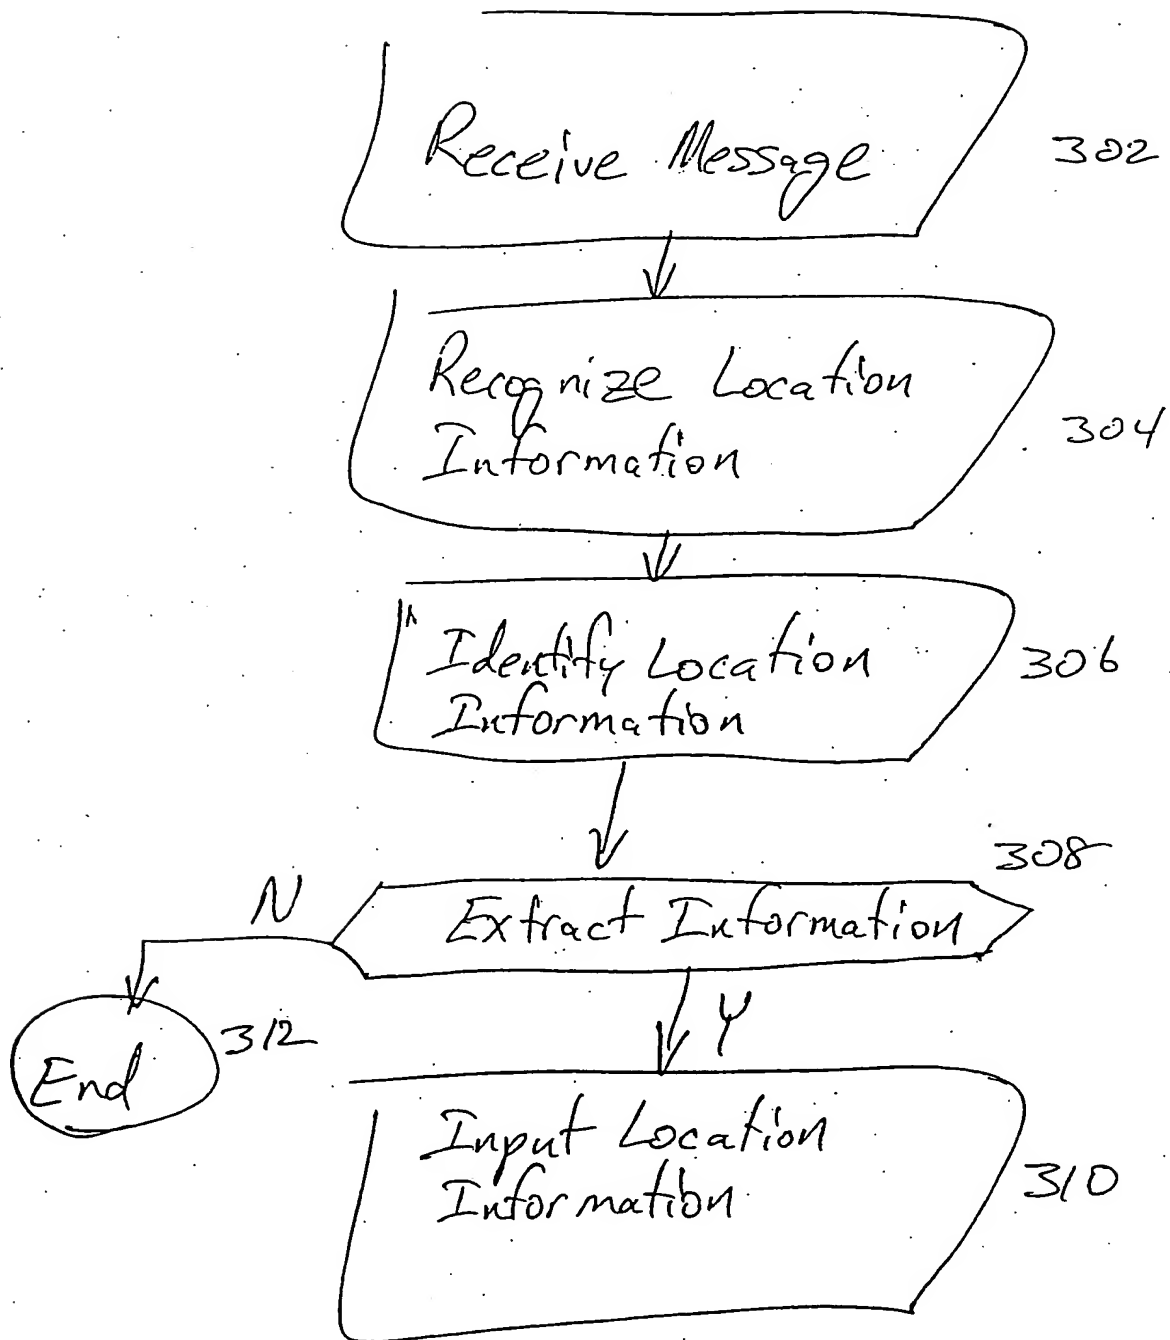 Receive Message
302
Recognize Location
Information
304
Identify Location
Information
306
308
N
Extract Information
Y
End
312
Input Location
Information
310